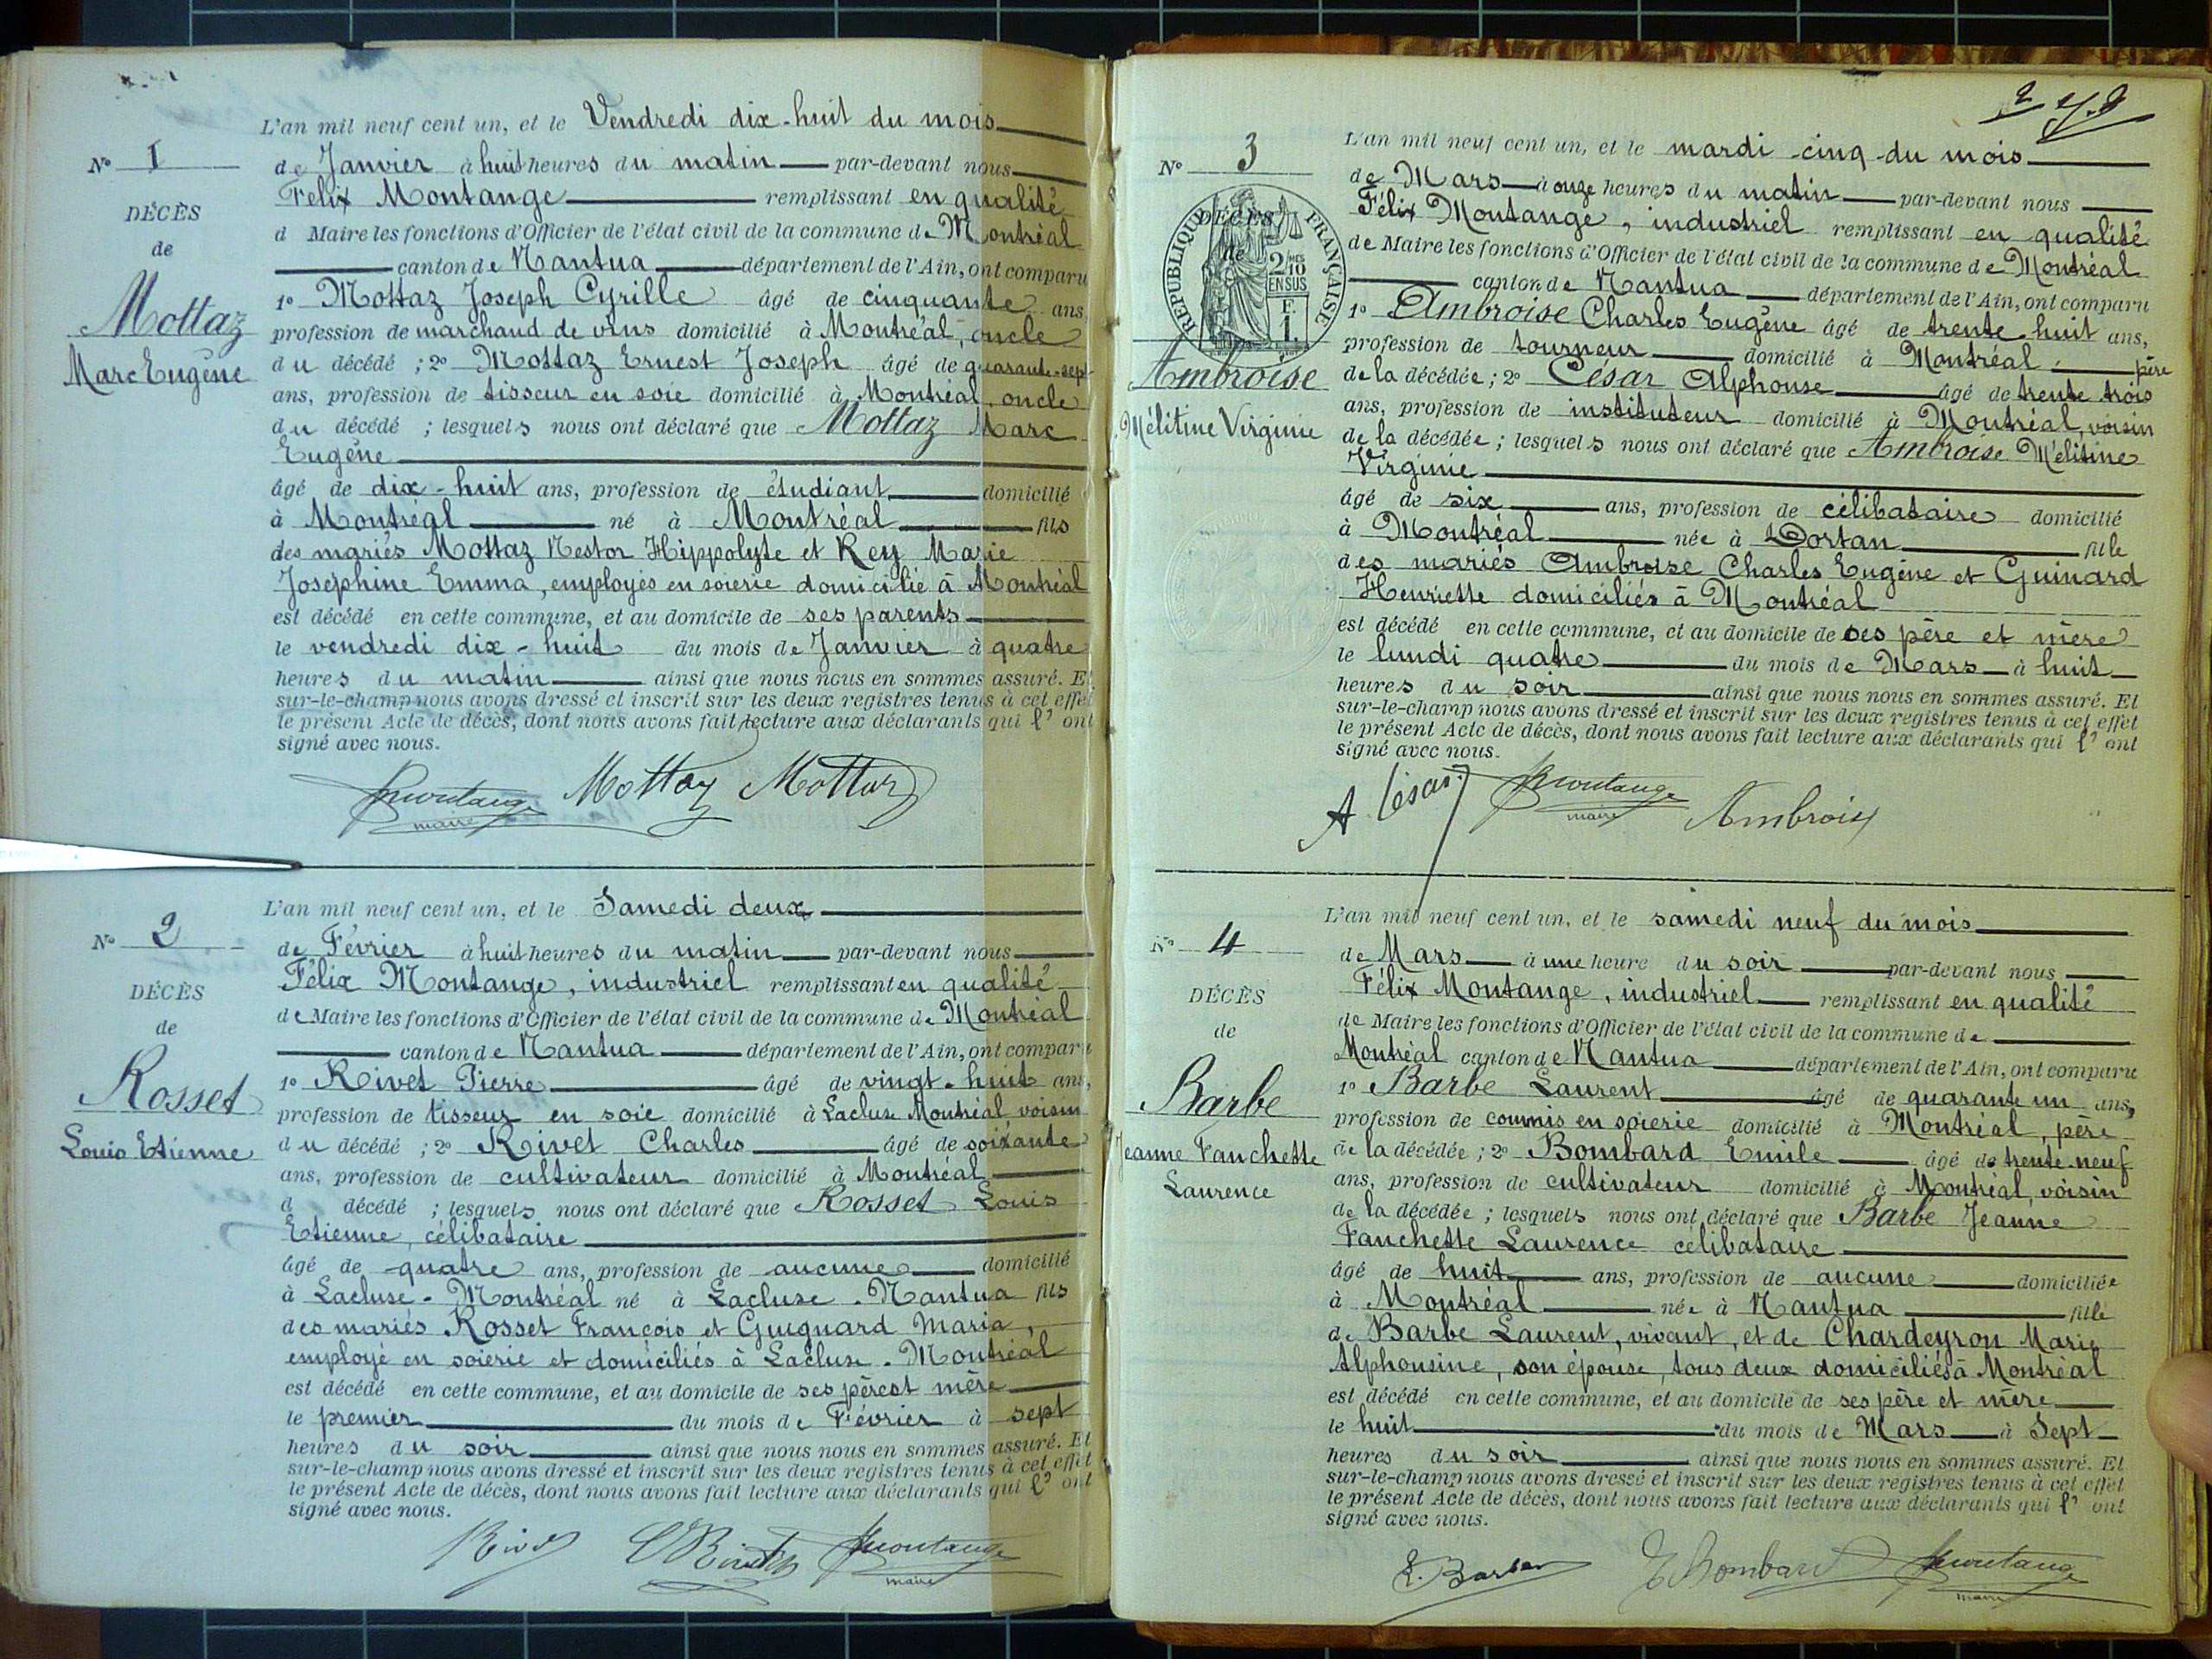 L'an mil neuf cent un, et le Vendredi dix-huit du mois
N° 1
de Janvier à huit heures du matin par-devant nous
Félix Montange remplissant en qualité
DÉCÈS
d Maire les fonctions d'Officier de l'état civil de la commune de Montréal
de
canton de Nantua département de l'Ain, ont comparu
Mottaz
1° Mottaz Joseph Cyrille âgé de cinquante ans
profession de marchand de vins domicilié à Montréal, oncle
Marc Eugène
du décédé ; 2° Mottaz Ernest Joseph âgé de quarante-sept
ans, profession de tisseur en soie domicilié à Montréal, oncle
du décédé ; lesquels nous ont déclaré que Mottaz Marc
Eugène
âgé de dix-huit ans, profession de étudiant domicilié
à Montréal né à Montréal fils
des mariés Mottaz Nestor Hippolyte et Rey Marie
Josephine Emma, employés en soierie domicilié à Montréal
est décédé en cette commune, et au domicile de ses parents
le vendredi dix-huit du mois de Janvier à quatre
heures du matin ainsi que nous nous en sommes assuré. Et
sur-le-champ nous avons dressé et inscrit sur les deux registres tenus à cet effet
le présent Acte de décès, dont nous avons fait lecture aux déclarants qui l' ont
signé avec nous.
Montange Mottaz Mottaz
maire
L'an mil neuf cent un, et le Samedi deux
N° 2
de Février à huit heures du matin par-devant nous
Félix Montange, industriel remplissant en qualité
DÉCÈS
de Maire les fonctions d'Officier de l'état civil de la commune de Montréal
de
canton de Nantua département de l'Ain, ont comparu
Rosset
1° Rivet Pierre âgé de vingt-huit ans,
profession de tisseur en soie domicilié à Lacluse Montréal voisin
Louis Etienne
du décédé ; 2° Rivet Charles âgé de soixante
ans, profession de cultivateur domicilié à Montréal
d décédé ; lesquels nous ont déclaré que Rosset Louis
Etienne, célibataire
âgé de quatre ans, profession de aucune domicilié
à Lacluse-Montréal né à Lacluse-Nantua fils
des mariés Rosset François et Guignard Maria,
employé en soierie et domiciliés à Lacluse-Montréal
est décédé en cette commune, et au domicile de ses père et mère
le premier du mois de Février à sept
heures du soir ainsi que nous nous en sommes assuré. Et
sur-le-champ nous avons dressé et inscrit sur les deux registres tenus à cet effet
le présent Acte de décès, dont nous avons fait lecture aux déclarants qui l' ont
signé avec nous.
Rivet Montange
maire
L'an mil neuf cent un, et le mardi cinq du mois
N° 3
de Mars à onze heures du matin par-devant nous
Félix Montange, industriel remplissant en qualité
DÉCÈS
de
RÉPUBLIQUE FRANÇAISE
2/10 EN SUS
F. 1.
de Maire les fonctions d'Officier de l'état civil de la commune de Montréal
canton de Nantua département de l'Ain, ont comparu
1° Ambroise Charles Eugène âgé de trente-huit ans,
profession de tourneur domicilié à Montréal père
Ambroise
de la décédée ; 2° César Alphonse âgé de trente trois
ans, profession de instituteur domicilié à Montréal, voisin
Mélitine Virginie
de la décédée ; lesquels nous ont déclaré que Ambroise Mélitine
Virginie
âgé de six ans, profession de célibataire domicilié
à Montréal née à Dortan fille
des mariés Ambroise Charles Eugène et Guinard
Henriette domiciliés à Montréal
est décédé en cette commune, et au domicile de ses père et mère
le lundi quatre du mois de Mars à huit
heures du soir ainsi que nous nous en sommes assuré. Et
sur-le-champ nous avons dressé et inscrit sur les deux registres tenus à cet effet
le présent Acte de décès, dont nous avons fait lecture aux déclarants qui l' ont
signé avec nous.
A César Montange Ambroise
maire
L'an mil neuf cent un, et le samedi neuf du mois
N° 4
de Mars à une heure du soir par-devant nous
Félix Montange, industriel remplissant en qualité
DÉCÈS
de Maire les fonctions d'Officier de l'état civil de la commune de
de
Montréal canton de Nantua département de l'Ain, ont comparu
Barbe
1° Barbe Laurent âgé de quarante un ans,
profession de commis en soierie domicilié à Montréal, père
Jeanne Fanchette
de la décédée ; 2° Bombard Emile âgé de trente-neuf
Laurence
ans, profession de cultivateur domicilié à Montréal, voisin
de la décédée ; lesquels nous ont déclaré que Barbe Jeanne
Fanchette Laurence célibataire
âgé de huit ans, profession de aucune domiciliée
à Montréal née à Nantua fille
de Barbe Laurent, vivant, et de Chardeyron Marie
Alphonsine, son épouse, tous deux domiciliés à Montréal
est décédé en cette commune, et au domicile de ses père et mère
le huit du mois de Mars à Sept
heures du soir ainsi que nous nous en sommes assuré. Et
sur-le-champ nous avons dressé et inscrit sur les deux registres tenus à cet effet
le présent Acte de décès, dont nous avons fait lecture aux déclarants qui l' ont
signé avec nous.
L. Barbe E Bombard Montange
maire